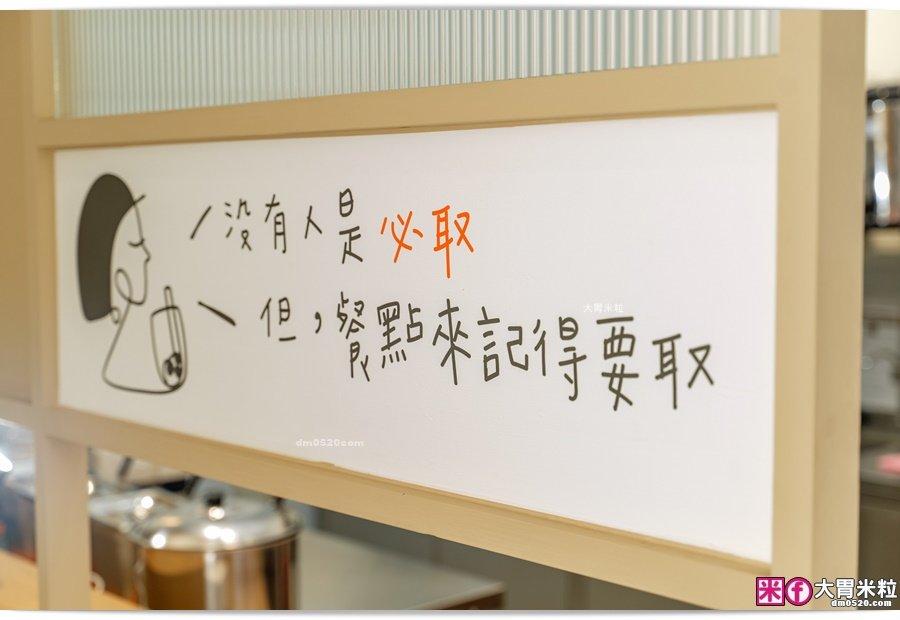 沒有人是必取
但，餐點來記得要取
大胃米粒
dm0520.com
米f大胃米粒
dm0520.com